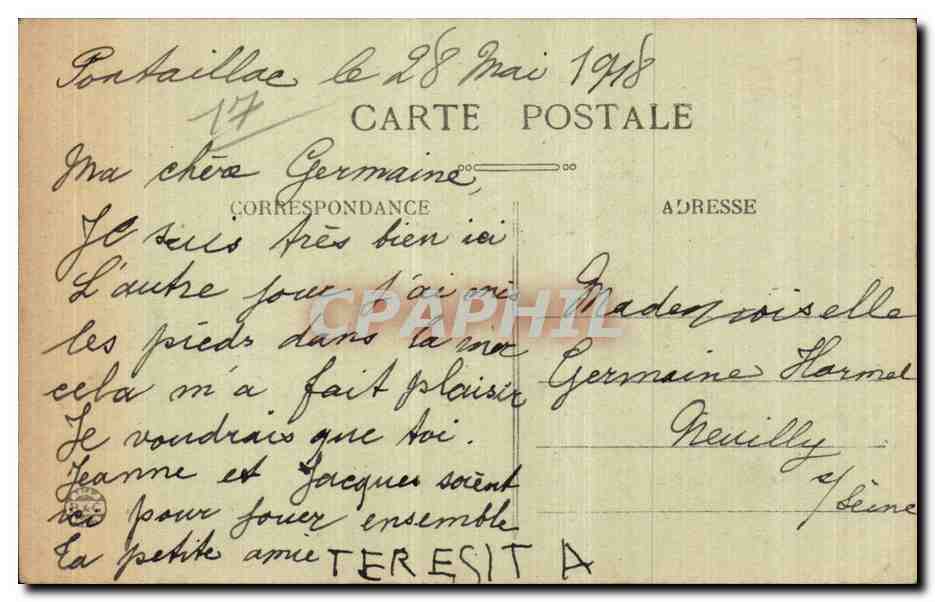 Pontaillac le 28 Mai 1918
17
CARTE POSTALE
Ma chère Germaine,
CORRESPONDANCE
Je suis très bien ici
L'autre jour j'ai mis
les pieds dans la mer
cela m'a fait plaisir
Je voudrais que toi.
Jeanne et Jacques soient
ici pour jouer ensemble
Ta petite amie TERESITA
ADRESSE
Mademoiselle
Germaine Harmel
Neuilly
s/
Seine
CPAPHIL